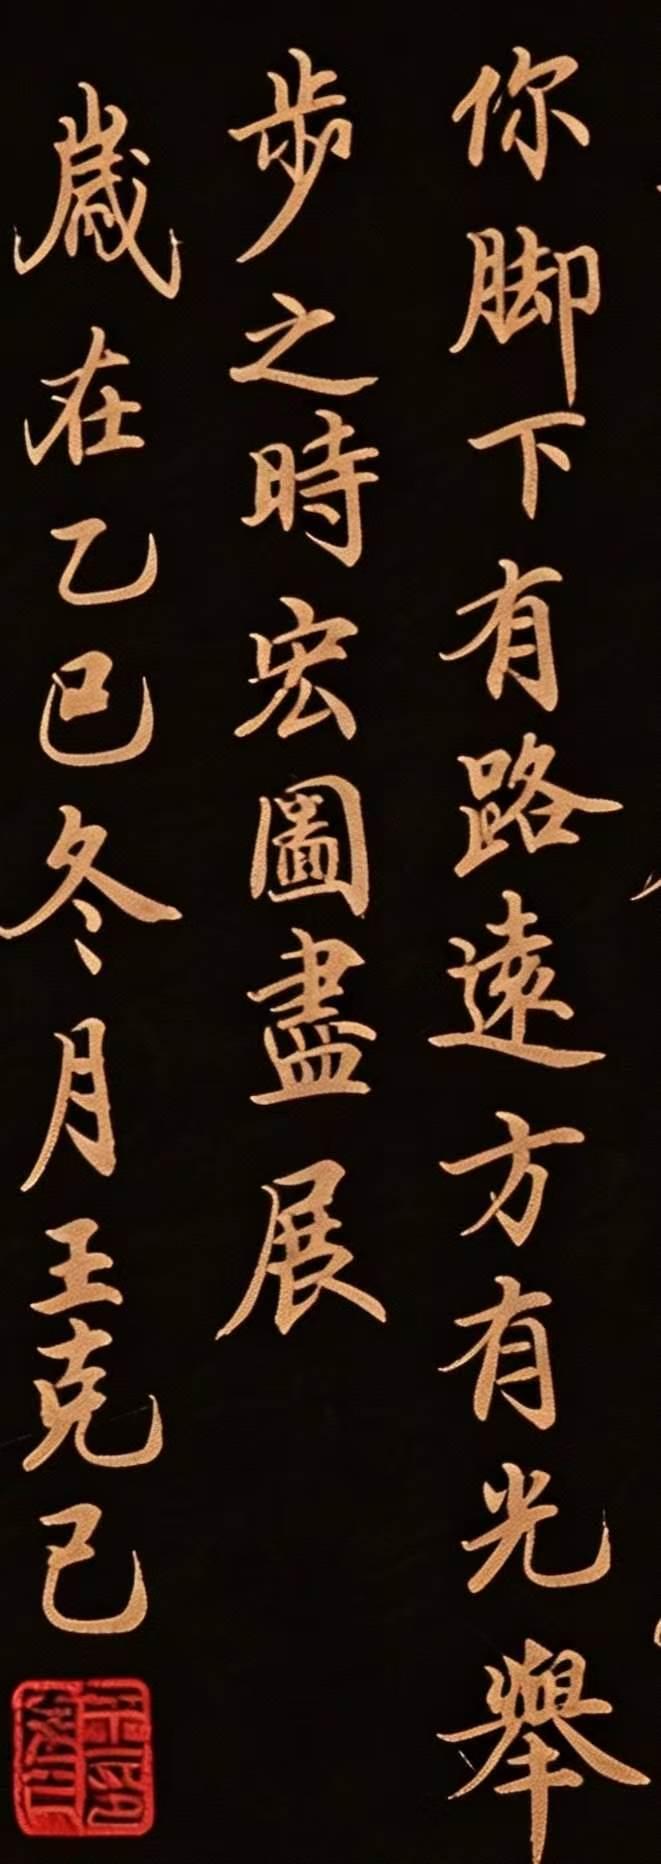 你脚下有路遠方有光舉
步之時宏圖盡展
歲在乙巳冬月王克己